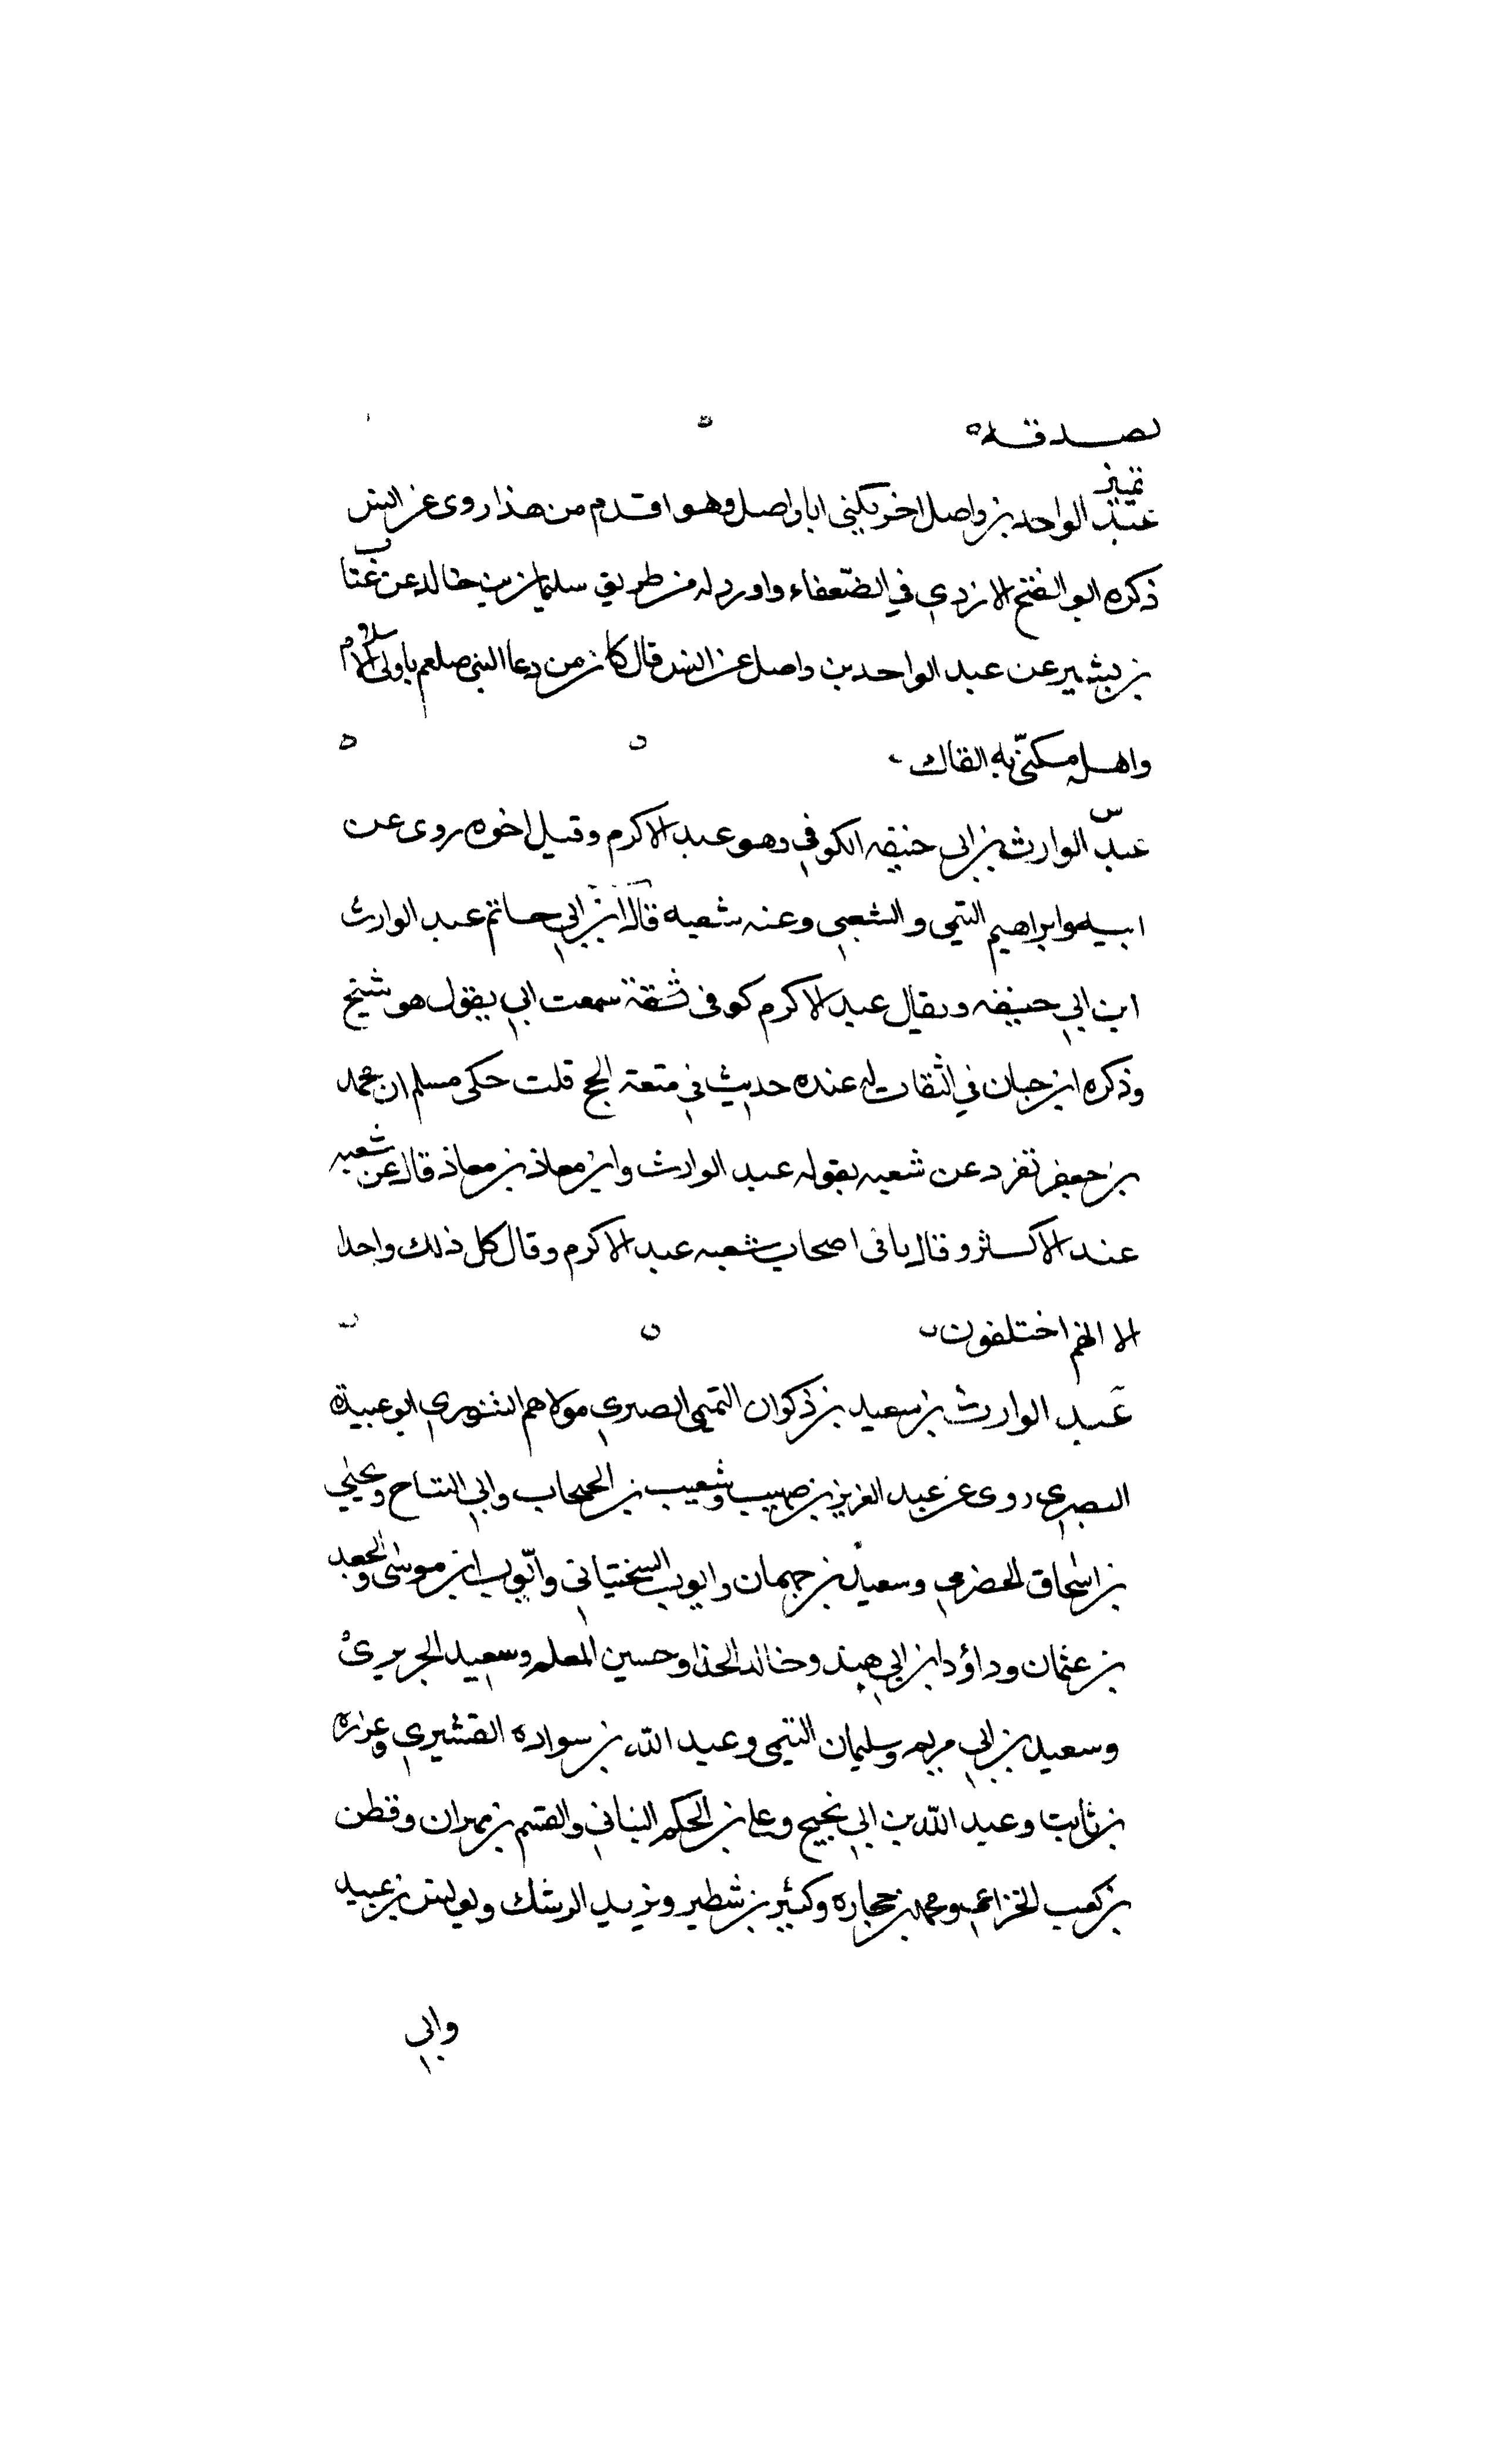 بصدقه ه
تمييز
عبد الواحد بن واصل اخر يكنى ابا واصل وهو اقدم من هذا روى عن انس
ذكره ابو الفتح الازدي في الضعفاء واورد له من طريق سليمان بن خالد عن عتاب
بن بشير عن عبد الواحد بن واصل عن انس قال كان من دعا النبي صلعم يا ولي الاسلام
واهله مكنّي به القاك
س
عبد الوارث بن ابي حنيفه الكوفي وهو عبد الاكرم وقيل اخوه روى عن
ابيه وابراهيم التيمي والشعبي وعنه شعبه قال ابن ابي حاتم عبد الوارث
ابن ابي حنيفه ويقال عبد الاكرم كوفى ثقة سمعت ابي يقول هو شيخ
وذكره ابن حبان في الثقات له عنده حديث في متعة الحج قلت حكى مسلم ان محمد
بن جعفر تفرد عن شعبه بقوله عبد الوارث وابن معاذ بن معاذ قال عن شعبه
عند الاكثر وقال باقى اصحاب شعبه عبد الاكرم وقال كل ذلك واحدا
الا انهم اختلفون
عبد الوارث بن سعيد بن ذكوان التميمي العنبري مولاهم التنوري ابو عبيدة
البصري روى عن عبد العزيز بن صهيب وشعيب بن الحبحاب وابي التياح ويحيى
بن اسحاق الحضرمي وسعيد بن جهمان وايوب السختياني وايّوب ابن موسى والجعد
بن عثمان وداؤد ابن ابي هند وخالد الحذا وحسين المعلم وسعيد الجريري
وسعيد بن ابي مريم وسليمان التيمى وعبد الله بن سواده القشيري وعزره
بن ثابت وعبد الله بن ابي نجيح وعلي بن الحكم البناني والقسم بن مهران وقطن
بن كعب الخزاعي ومحمد بن جحاده وكثير بن شنظير ويزيد الرشك ويونس بن عبيد
وابي